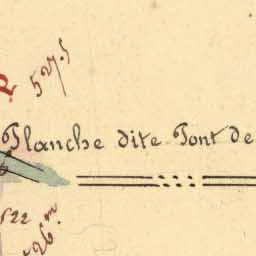 527.5
Planche dite Pont de
522
26.m